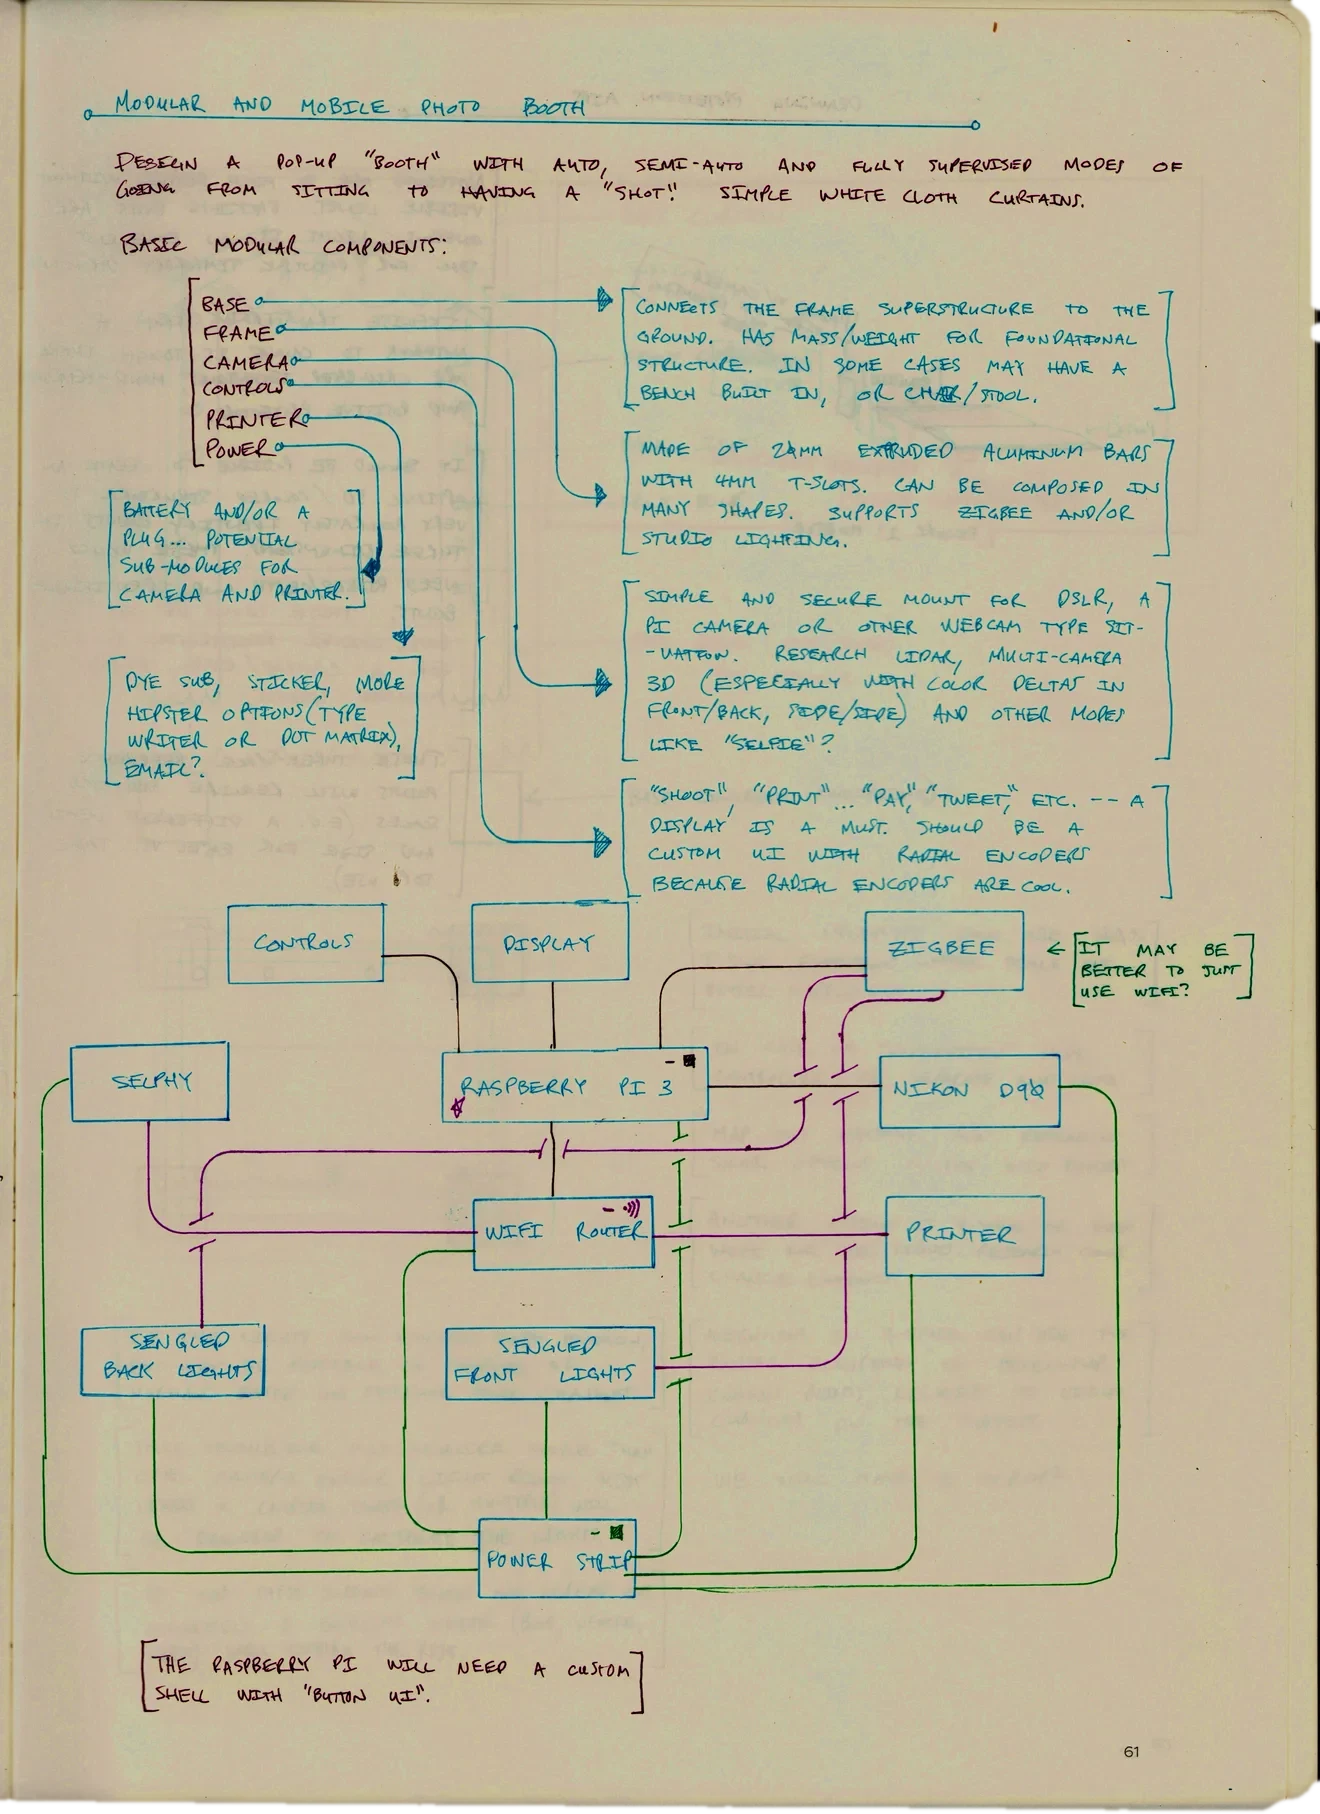 MODULAR AND MOBILE PHOTO BOOTH
DESIGN A POP-UP "BOOTH" WITH AUTO, SEMI-AUTO AND FULLY SUPERVISED MODES OF
GOING FROM SITTING TO HAVING A "SHOT". SIMPLE WHITE CLOTH CURTAINS.
BASIC MODULAR COMPONENTS:
BASE
FRAME
CAMERA
CONTROLS
PRINTER
POWER
CONNECTS THE FRAME SUPERSTRUCTURE TO THE
GROUND. HAS MASS/WEIGHT FOR FOUNDATIONAL
STRUCTURE. IN SOME CASES MAY HAVE A
BENCH BUILT IN, OR CHAIR/STOOL.
MADE OF MM EXTRUDED ALUMINUM BARS
WITH 4MM T-SLOTS. CAN BE COMPOSED IN
MANY SHAPES. SUPPORTS ZIGBEE AND/OR
STUDIO LIGHTING.
BATTERY AND/OR A
PLUG... POTENTIAL
SUB-MODULES FOR
CAMERA AND PRINTER.
SIMPLE AND SECURE MOUNT FOR DSLR, A
PI CAMERA OR OTHER WEBCAM TYPE SIT-
-UATION. RESEARCH LIDAR, MULTI-CAMERA
3D (ESPECIALLY WITH COLOR DELTAS IN
FRONT/BACK, SIDE/SIDE) AND OTHER MODES
LIKE "SELFIE"?
DYE SUB, STICKER, MORE
HIPSTER OPTIONS (TYPE
WRITER OR DOT MATRIX),
EMAIL?
"SHOOT", "PRINT"... "PAY", "TWEET", ETC. -- A
DISPLAY IS A MUST. SHOULD BE A
CUSTOM UI WITH RADIAL ENCODERS
BECAUSE RADIAL ENCODERS ARE COOL.
CONTROLS
DISPLAY
ZIGBEE
IT MAY BE
BETTER TO JUST
USE WIFI?
SELPHY
RASPBERRY PI 3
NIKON
WIFI ROUTER
PRINTER
SENGLED
BACK LIGHTS
SENGLED
FRONT LIGHTS
POWER STRIP
THE RASPBERRY PI WILL NEED A CUSTOM
SHELL WITH "BUTTON UI".
61